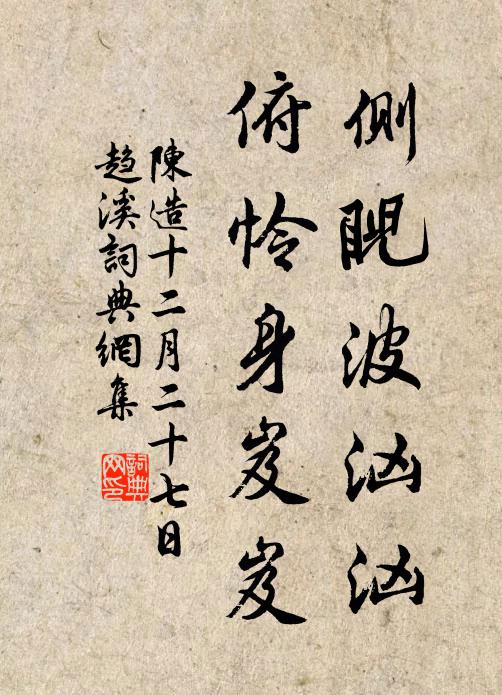 側睨波汹汹
俯怜身岌岌
陳造十二月二十七日
趋溪詞典網集
詞典
网印